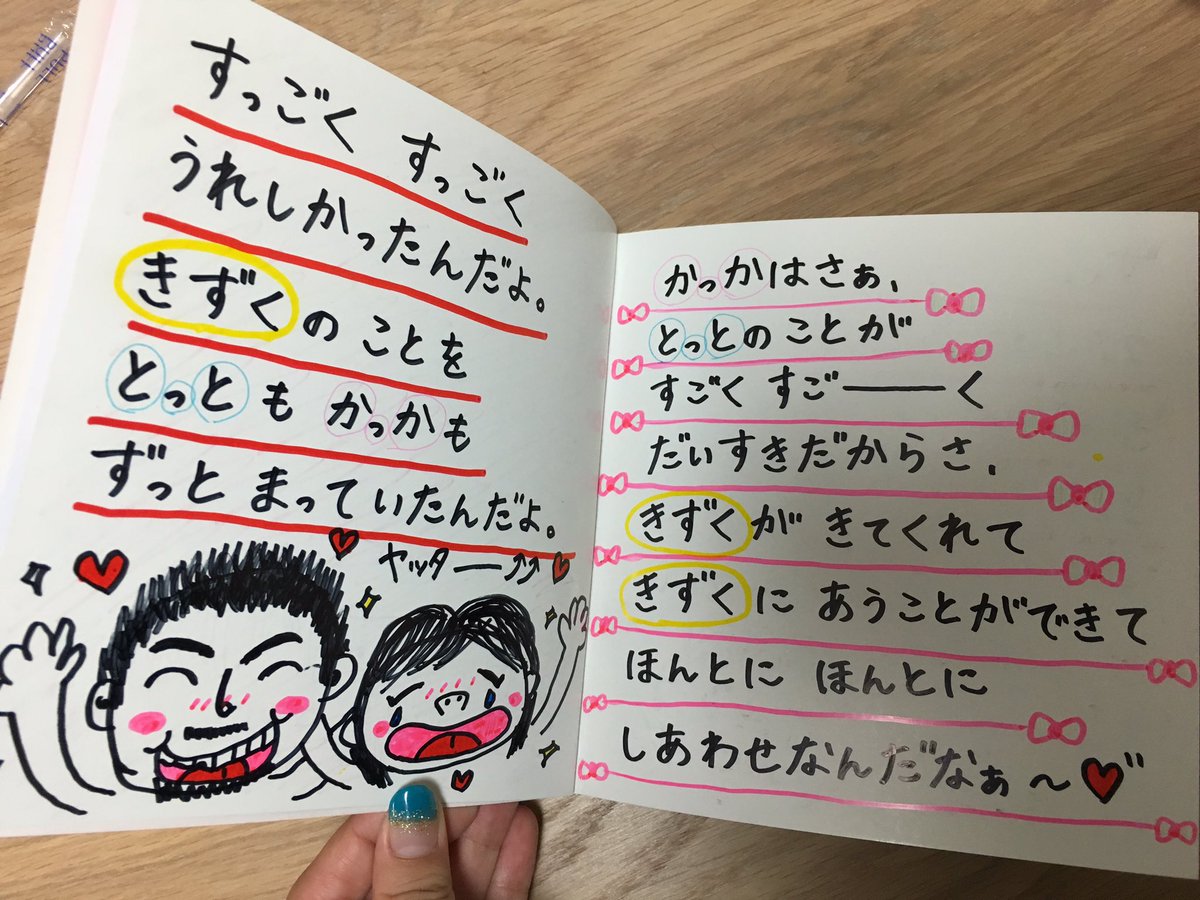 すっごく すっごく
うれしかったんだよ。
きずくのことを
とっとも かっかも
ずっと まっていたんだよ。
ヤッター↑↑
かっかはさぁ、
とっとのことが
すごく すごーーーく
だいすきだからさ、
きずくが きてくれて
きずくに あうことができて
ほんとに ほんとに
しあわせなんだなぁ〜